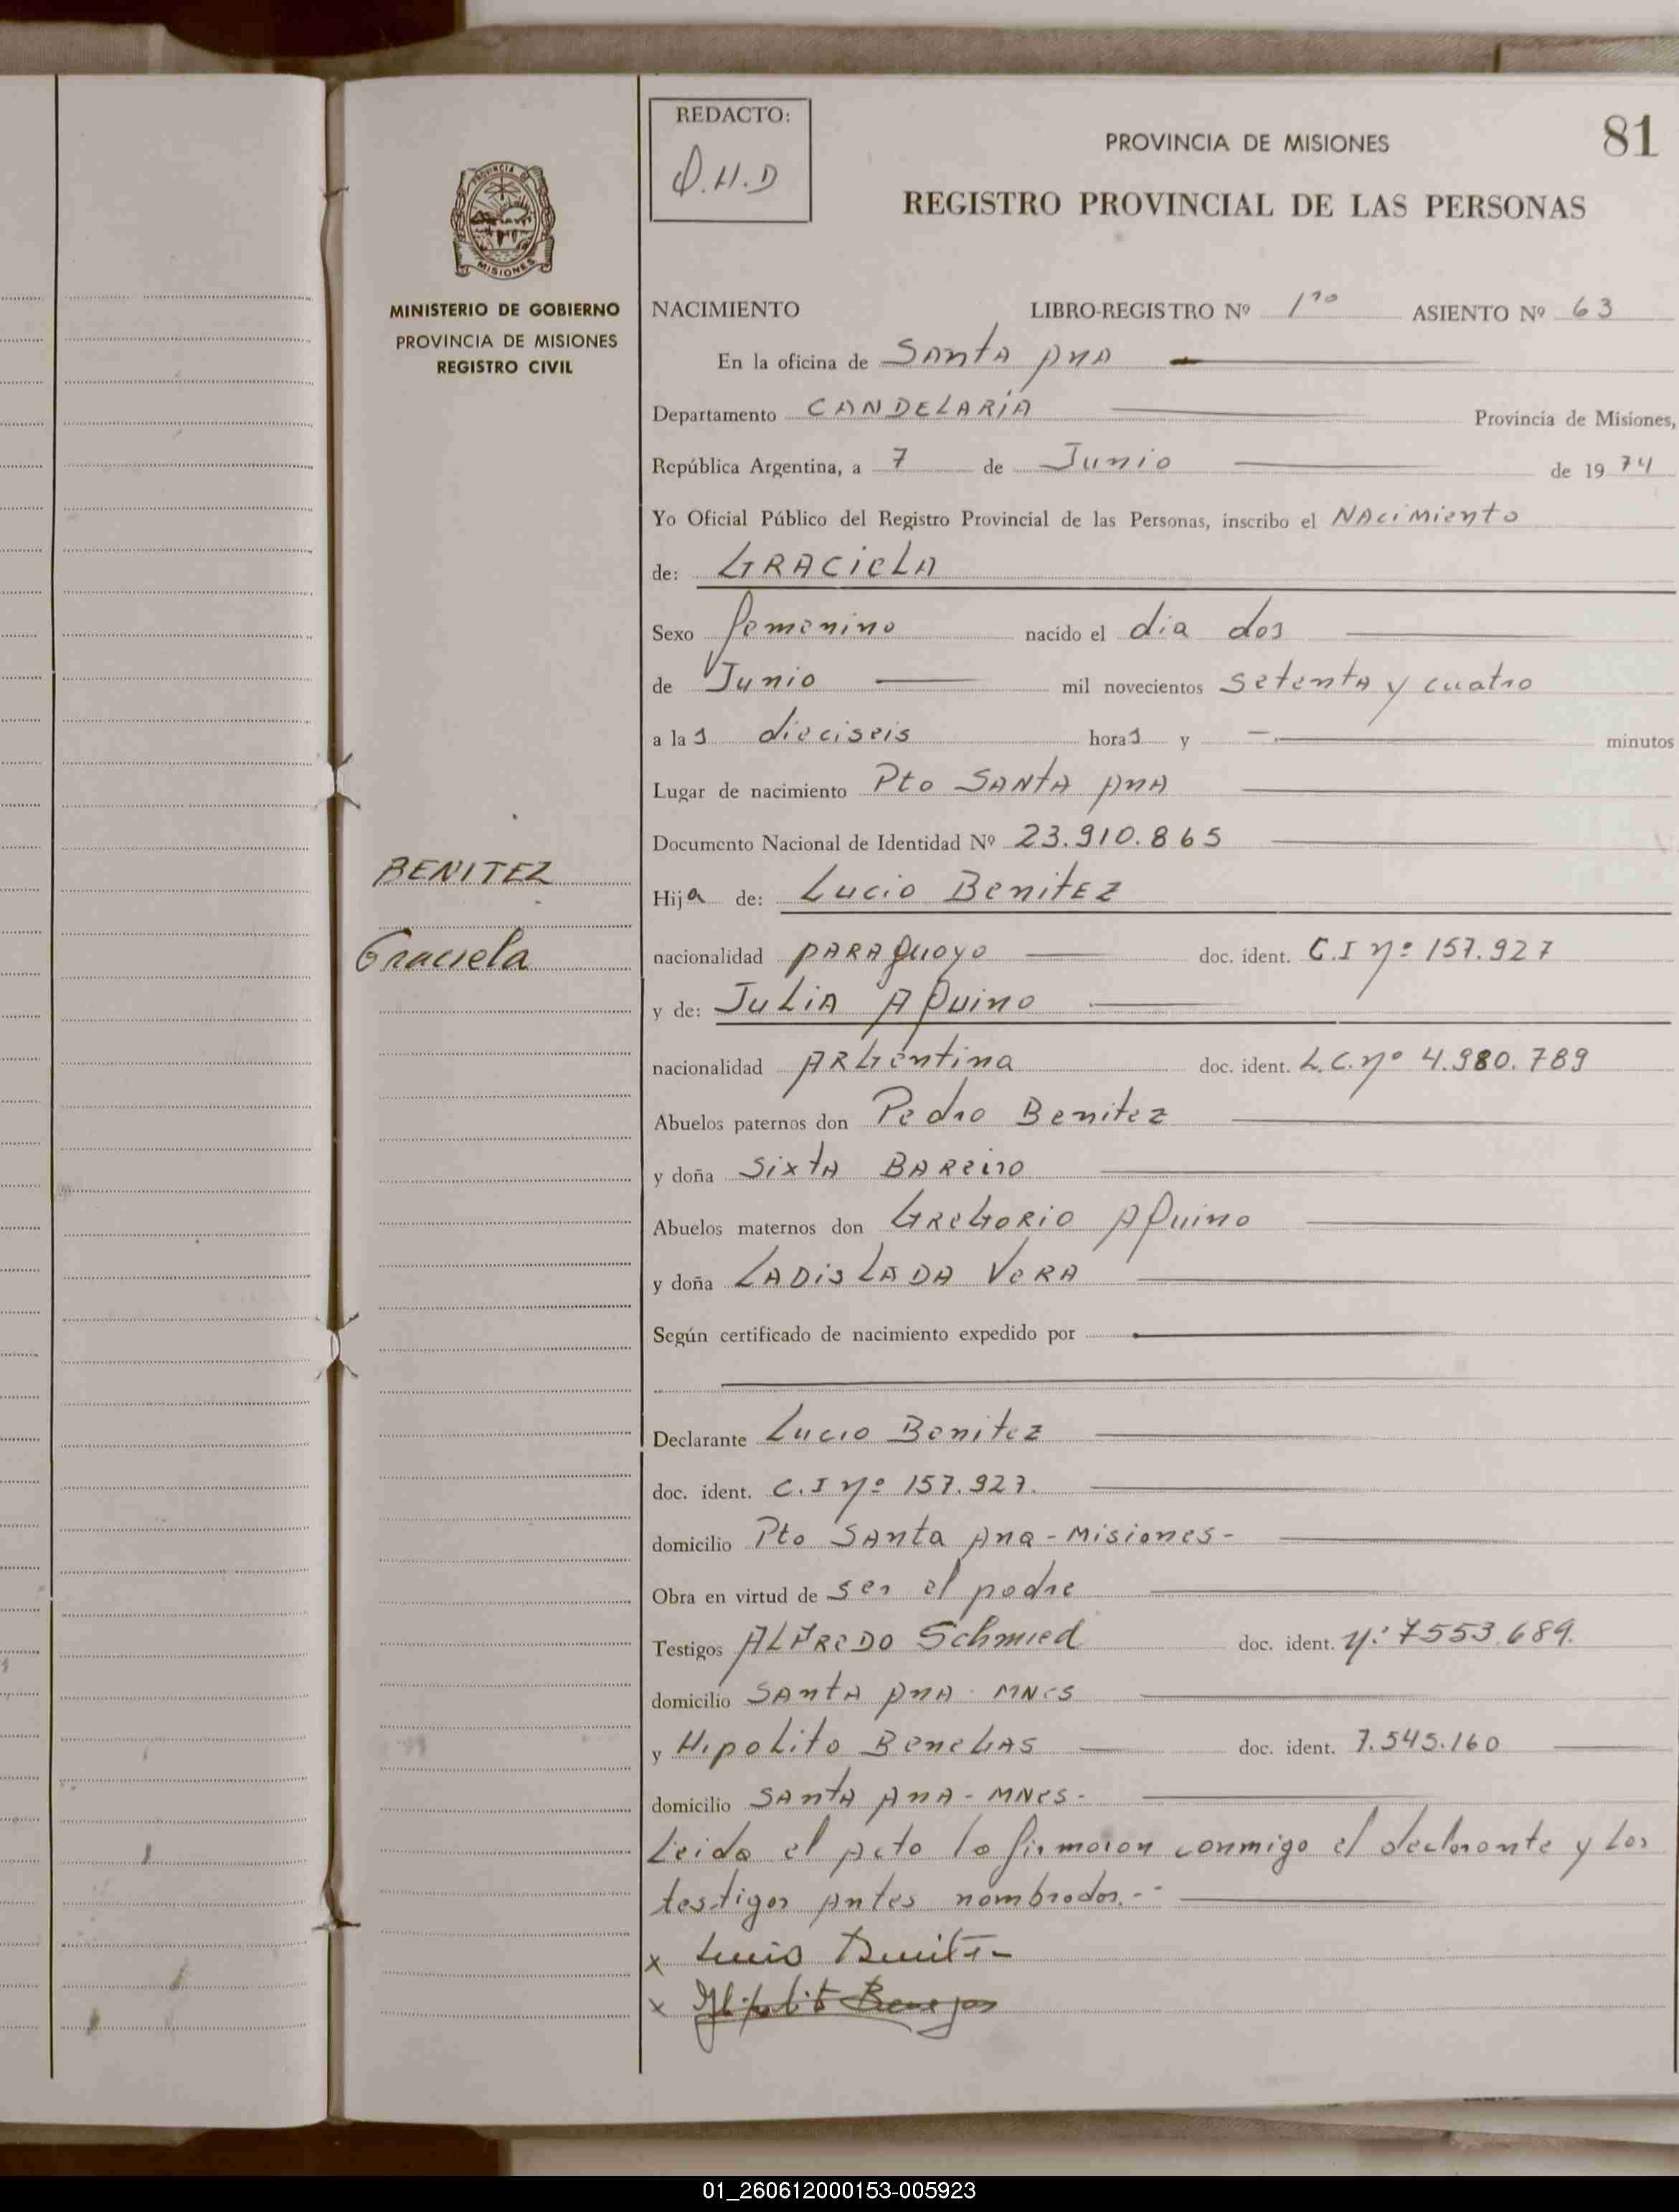 REDACTO:
Q.H.D
PROVINCIA DE MISIONES
81
REGISTRO PROVINCIAL DE LAS PERSONAS
PROVINCIA DE
MISIONES
MINISTERIO DE GOBIERNO
PROVINCIA DE MISIONES
REGISTRO CIVIL
NACIMIENTO LIBRO-REGISTRO Nº 1ro ASIENTO Nº 63
En la oficina de Santa Ana
Departamento CANDELARIA Provincia de Misiones,
República Argentina, a 7 de Junio de 1974
Yo Oficial Público del Registro Provincial de las Personas, inscribo el Nacimiento
de: GRACIELA
Sexo femenino nacido el dia dos
de Junio mil novecientos setenta y cuatro
a las dieciseis horas y — minutos
Lugar de nacimiento Pto Santa Ana
Documento Nacional de Identidad Nº 23.910.865
BENITEZ
Hija de: Lucio Benitez
Graciela
nacionalidad paraguayo doc. ident. C.I nº 157.927
y de: Julia Aquino
nacionalidad Argentina doc. ident. L.C. nº 4.980.789
Abuelos paternos don Pedro Benitez
y doña Sixta Bareiro
Abuelos maternos don Gregorio Aquino
y doña Ladislada Vera
Según certificado de nacimiento expedido por
Declarante Lucio Benitez
doc. ident. C.I nº 157.927.
domicilio Pto Santa Ana - Misiones -
Obra en virtud de ser el padre
Testigos Alfredo Schmied doc. ident. nº 7553.689.
domicilio Santa Ana - MNES
y Hipolito Benegas doc. ident. 7.545.160
domicilio Santa Ana - MNES -
Leida el acta la firmaron conmigo el declarante y los
testigos antes nombrados.-
x Lucio Benitez
x Hipolito Benegas
01_260612000153-005923